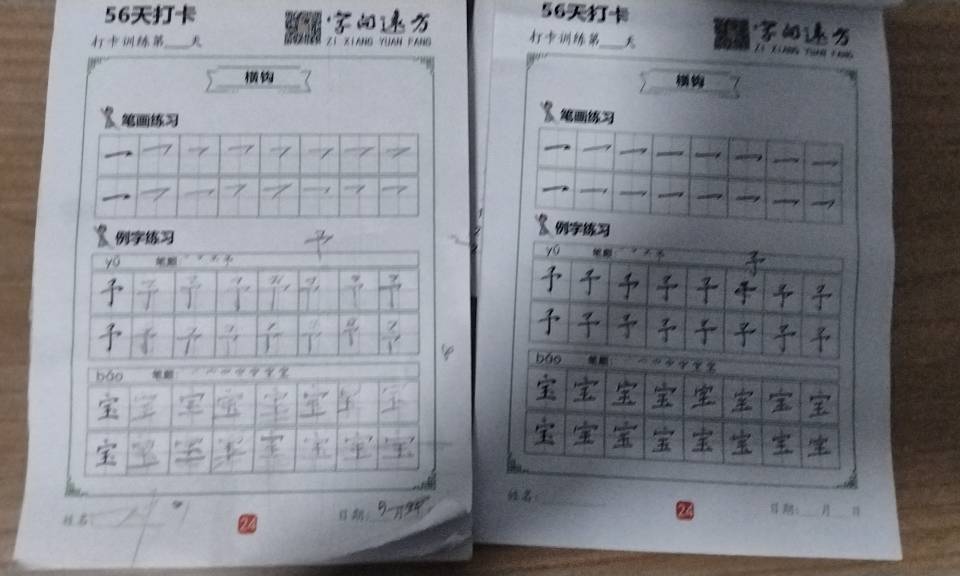 56天打卡
字向速方
打卡训练第___天
ZI XIANG YUAN FANG
横钩
笔画练习
例字练习
予
yǔ 笔顺:
予 予 予 予 予 予 予 予
予 予 予 予 予 予 予 予
bǎo 笔顺:
宝 宝 宝 宝 宝 宝 宝 宝
宝 宝 宝 宝 宝 宝 宝 宝
姓名:
24
日期: 5月
56天打卡
字向速方
打卡训练第___天
ZI XIANG YUAN FANG
横钩
笔画练习
例字练习
予
yǔ 笔顺:
予 予 予 予 予 予 予 予
予 予 予 予 予 予 予 予
bǎo 笔顺:
宝 宝 宝 宝 宝 宝 宝 宝
宝 宝 宝 宝 宝 宝 宝 宝
姓名:
24
日期:___月___日